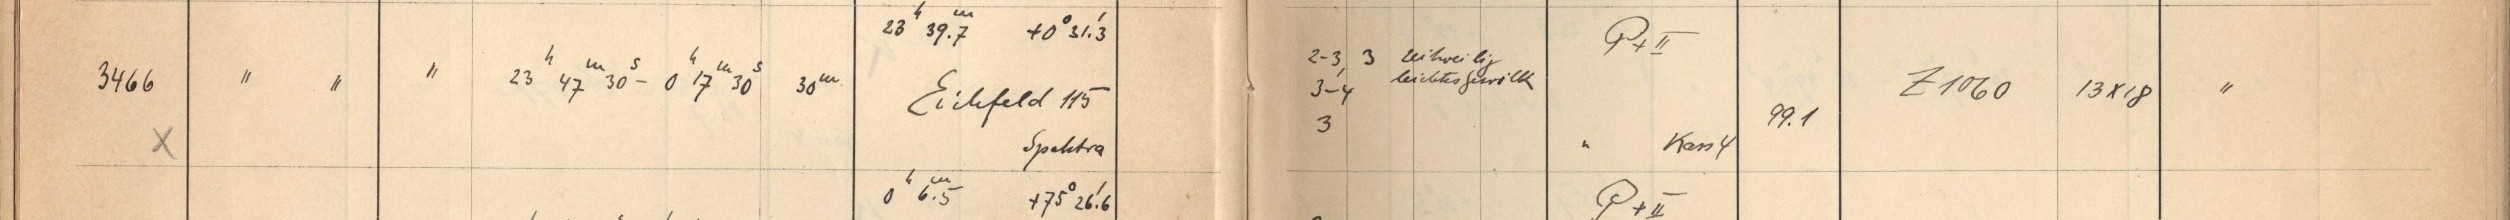 23ʰ 39.7ᵐ +0° 31.′3
3466 " " " 23ʰ 47ᵐ 30ˢ – 0ʰ 17ᵐ 30ˢ 30ᵐ
Eichfeld 115
Spektra
X
2-3, 3 zeitweilig
3-4 leichtes Gewölk
3
P + II
" Kass 4
99.1
Z 1060 13 x 18 "
0ʰ 6.5ᵐ +75° 26.′6
P + II